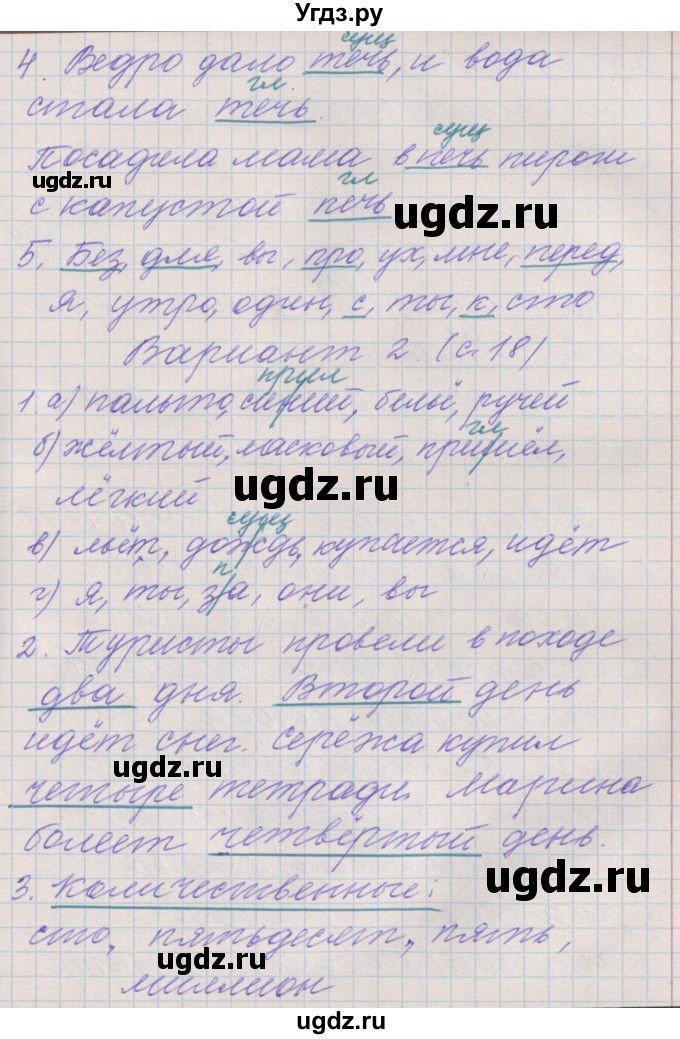 Угдз.ру
сущ
4. Ведро дало течь, и вода
гл.
стала течь.
сущ
Посадила мама в печь пирож
ugdz.ru
гл
с капустой печь
ugdz.ru
5. Без, для, вы, про, ух, мне, перед,
я, утро, один, с, ты, к, сто
Вариант 2. (с. 18)
прил
1. а) пальто, синий, бельё, ручей
гл
б) жёлтый, ласковый, пришёл,
ugdz.ru
лёгкий
сущ
в) льёт, дождь, купается, идёт
п
г) я, ты, за, они, вы
2. Туристы провели в походе
два дня. Второй день
идёт снег. Серёжа купил
ugdz.ru
четыре тетради. Марина
болеет четвёртый день.
ugdz.ru
3. Количественные:
сто, пятьдесят, пять,
ugdz.ru
миллион
ugdz.ru